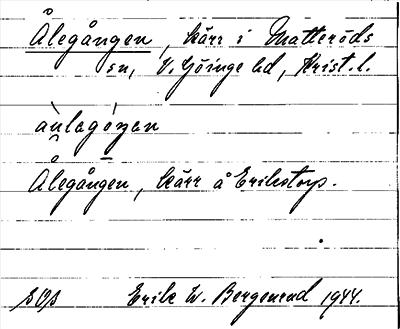 Ålegången, kärr i Matteröds
sn, V. Göinge hd, Krist. l.
Ålegången, kärr å Erikstorp.
Erik W. Bergenrud 1944.